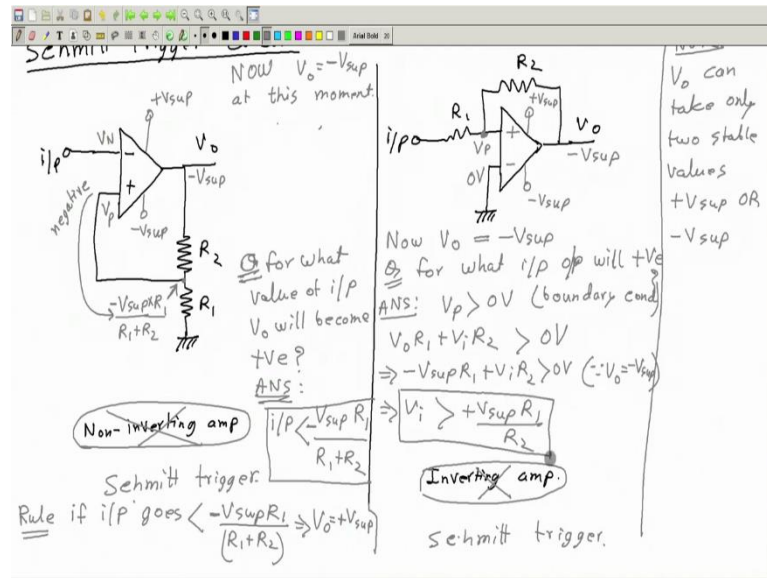 Schmitt Trigger
NOW V₀ = -Vsup
at this moment.
+Vsup
i/p
VN
-
+
Vp
V₀
-Vsup
-Vsup
negative
R₂
R₁
-Vsup×R₁
R₁+R₂
Q for what
value of i/p
V₀ will become
+ve?
ANS:
i/p < -Vsup R₁
R₁+R₂
Non-inverting amp
Schmitt trigger.
Rule if i/p goes < -VsupR₁ ⇒ V₀=+Vsup
(R₁+R₂)
R₂
R₁
i/p
+Vsup
Vp
+
-
0V
V₀
-Vsup
-Vsup
Now V₀ = -Vsup
Q for what i/p o/p will +ve
?
ANS: Vp > 0V (boundary cond)
V₀R₁+ViR₂ > 0V
⇒ -VsupR₁+ViR₂>0V (∵V₀=-Vsup)
⇒ Vi > +VsupR₁
R₂
Inverting amp.
Schmitt trigger.
V₀ can
take only
two stable
values
+Vsup OR
-Vsup
Arial Bold 20